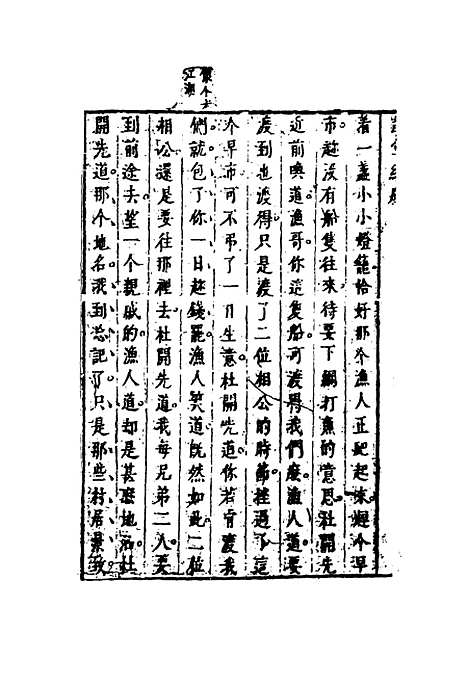 着一盞小小燈籠恰好那个漁人正爬起來趕个早
市趂沒有船隻往來待要下網打魚的意思杜開先
近前喚道漁哥你這隻船可渡得我們麽漁人道要
渡到也渡得只是渡了二位相公的時節挫過了這
个早市可不弔了一日生意杜開先道你若肯渡我
們就包了你一日趂錢罷漁人笑道旣然如此二位
相公還是要往那裡去杜開先道我每兄弟二人要
到前途去望一个親戚的漁人道却是甚麽地名杜
開先道那个地名我到忘記了只是那些村居景致